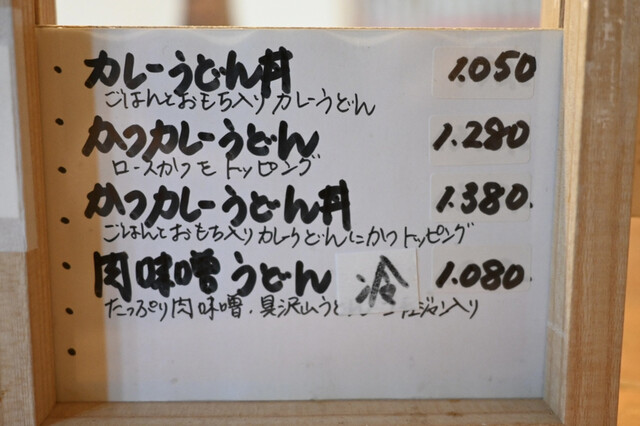 ・カレーうどん丼 1.050
ごはんとおもち入りカレーうどん
・かつカレーうどん 1.280
ロースカツをトッピング
・かつカレーうどん丼 1.380.
ごはんとおもち入りカレーうどんにかつトッピング
・肉味噌うどん 冷 1.080.
たっぷり肉味噌、具沢山う
ジャン入り